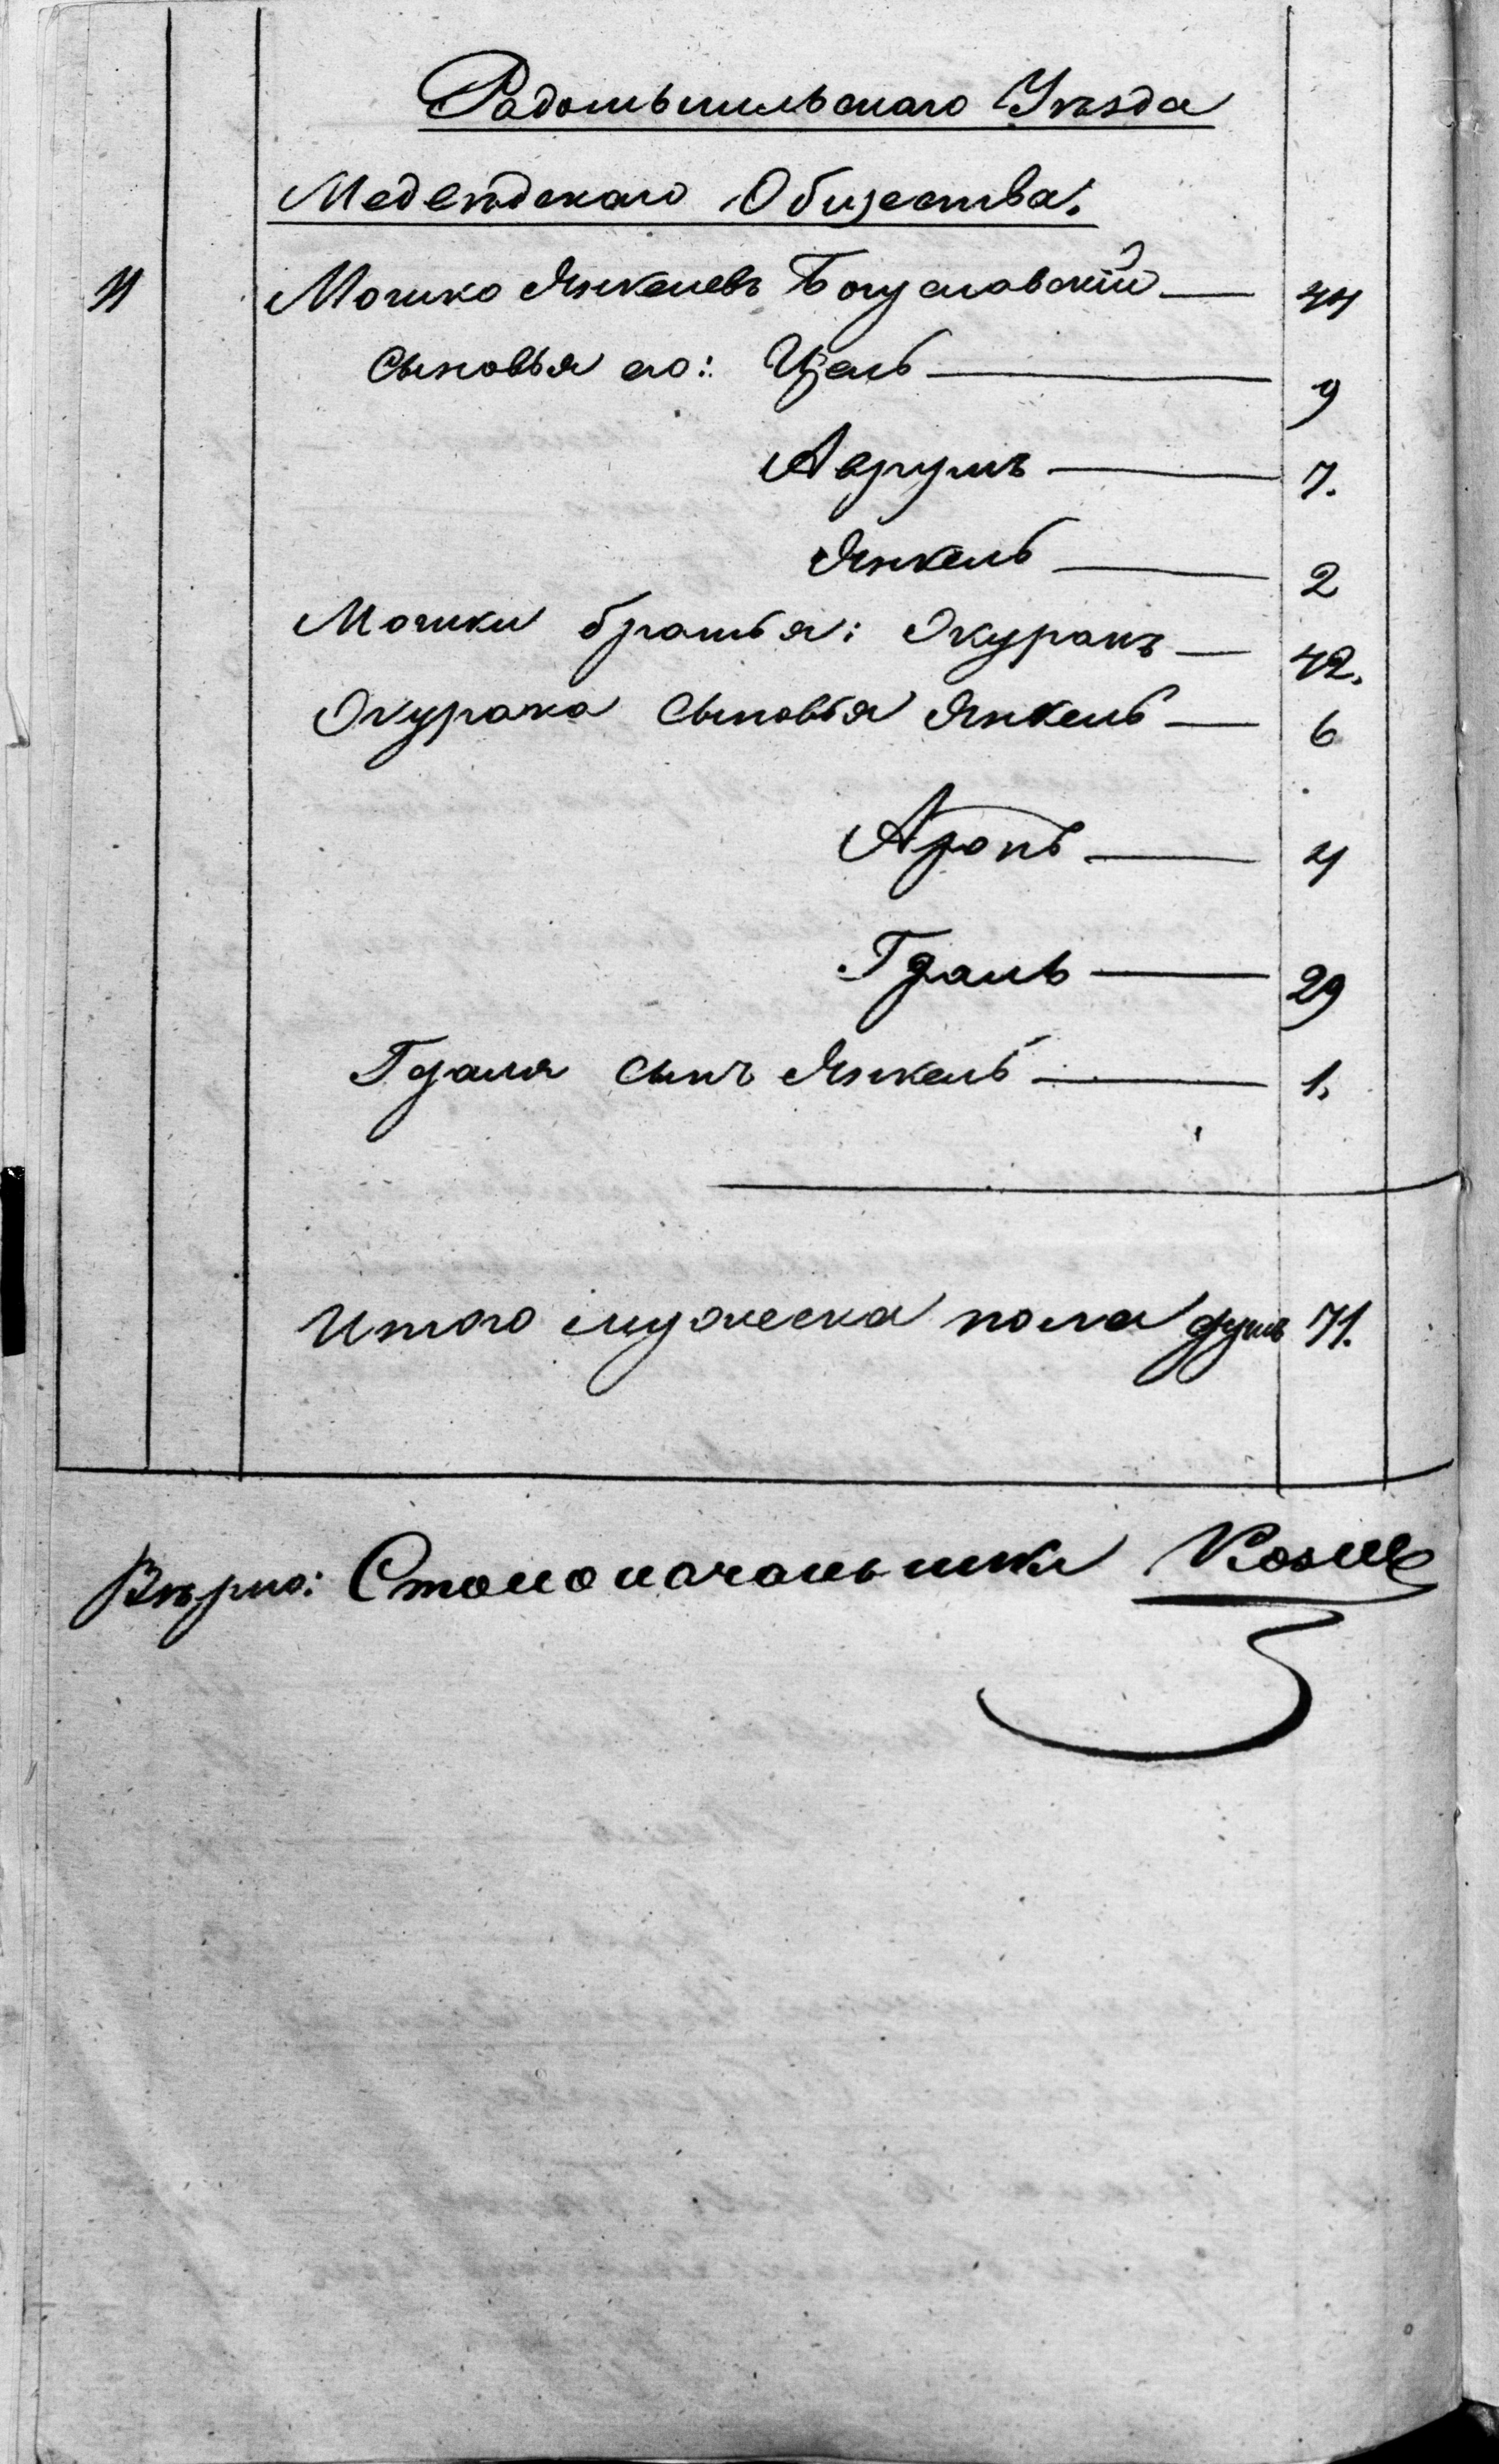 Радомысльскаго Уѣзда
Медвѣдскаго Общества.
4 Мошко Янкелевъ Богуславскій — 44
Сыновья его: Цаль — 9
Аврумъ — 7.
Янкель — 2
Мошки братья: Окуракъ — 42.
Окурака Сыновья Янкель — 6
Аронъ — 4
Гдаль — 29
Гдаля сынъ Янкель — 1.
Итого мужеска пола душъ 71.
Вѣрно: Столоначальникъ